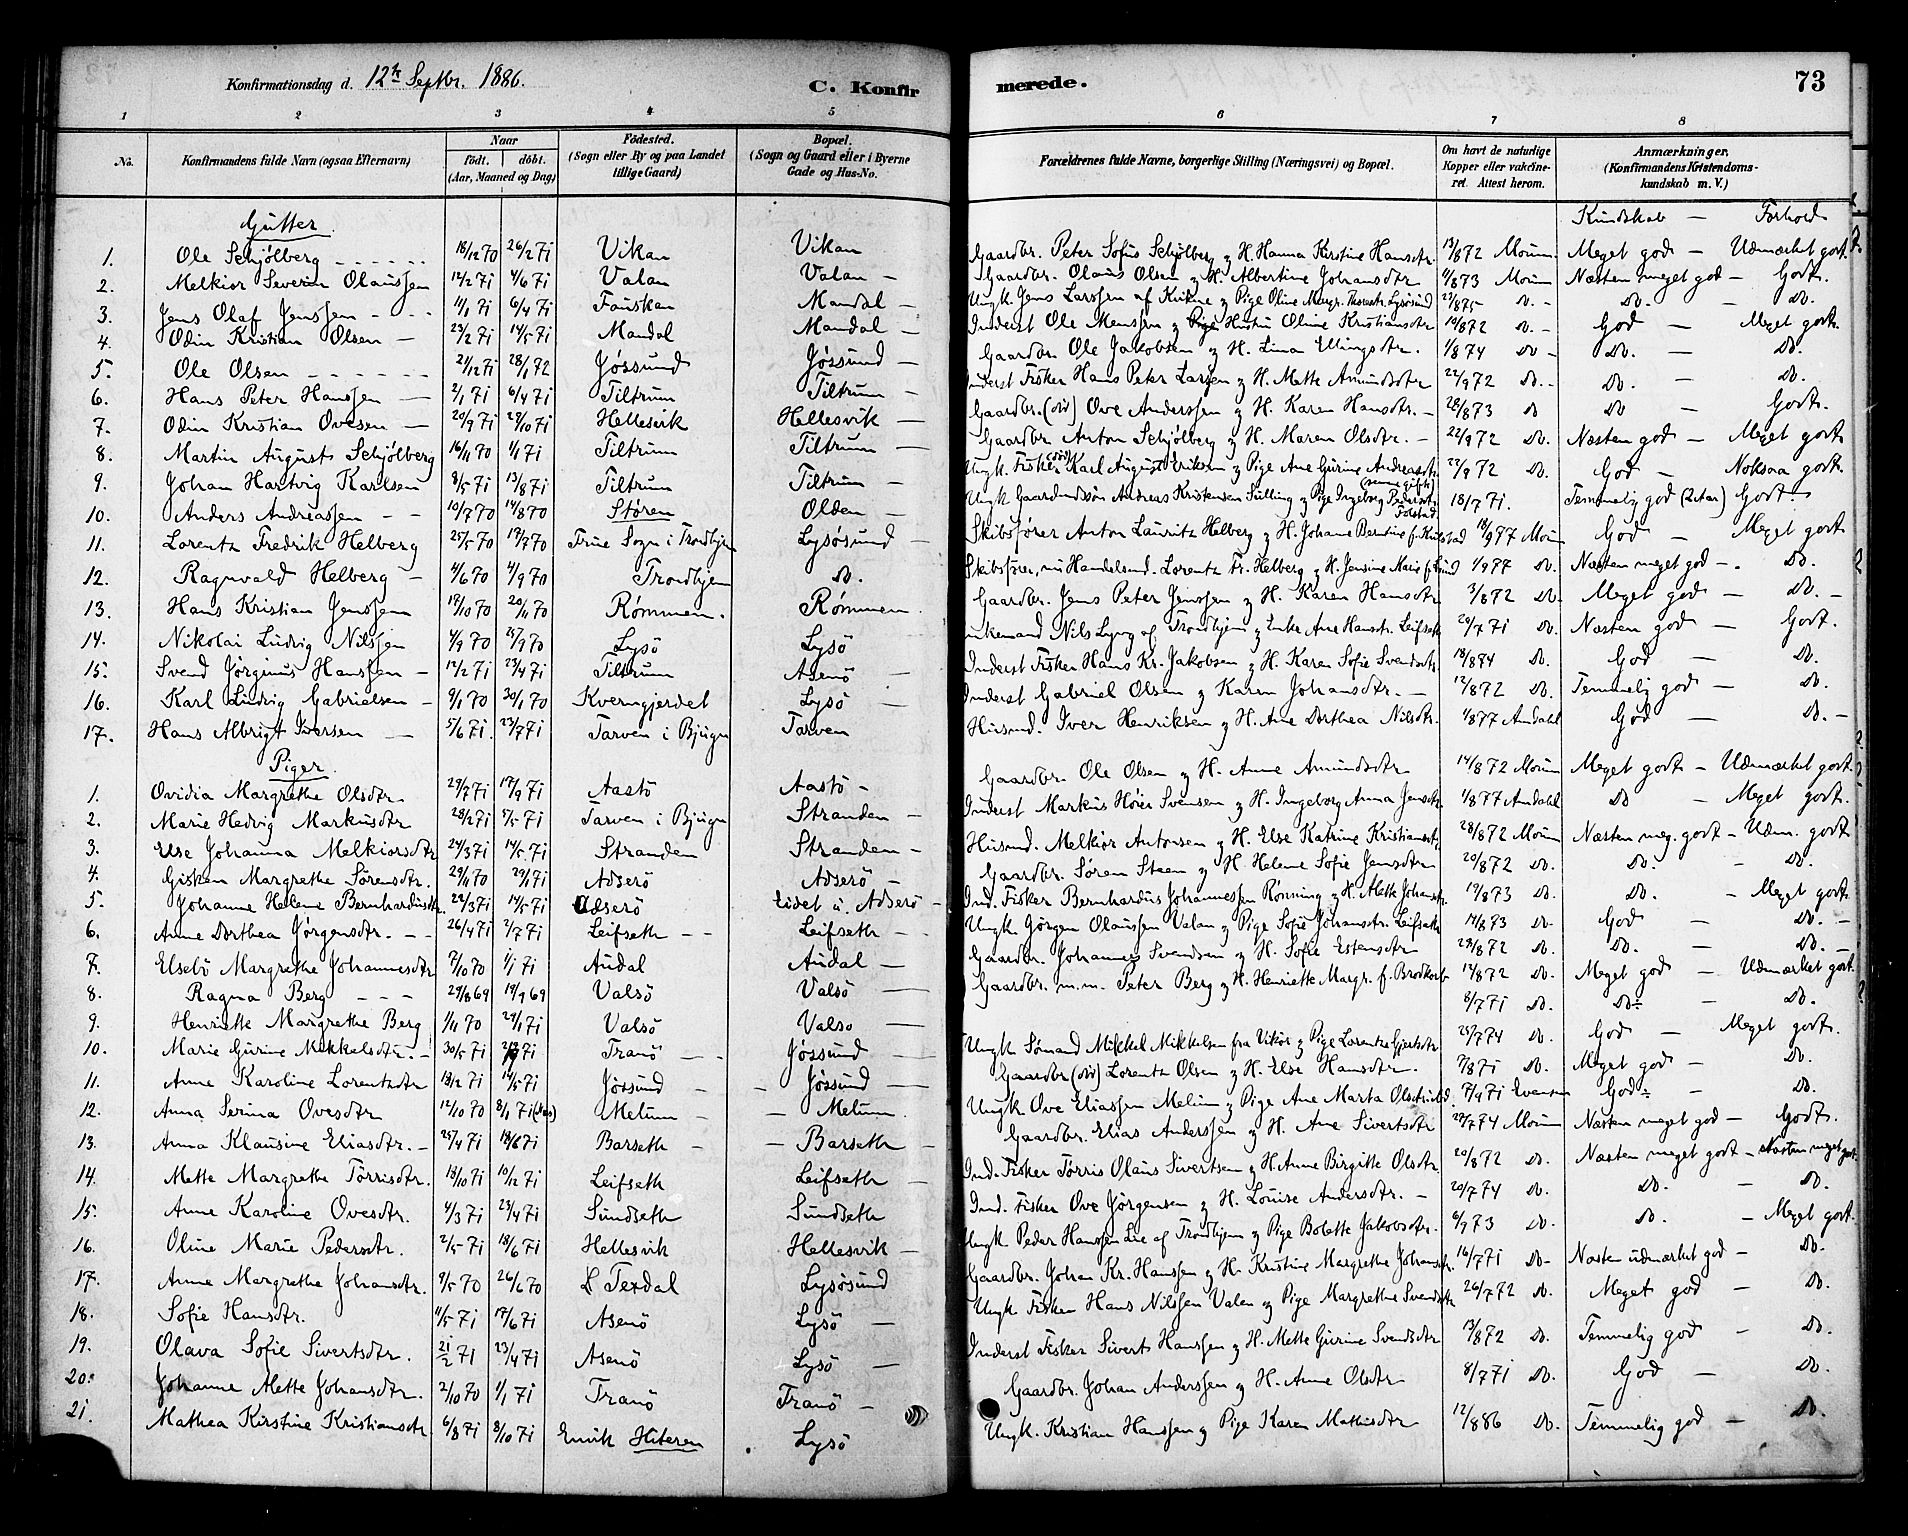 Konfirmationsdag d. 12te Septbr. 1886.
C. Konfirmerede.
73
1 2 3 4 5 6 7 8
No.
Konfirmandens fulde Navn (ogsaa Efternavn)
Naar
født. döbt.
(Aar, Maaned og Dag)
Födested.
(Sogn eller By og paa Landet
tillige Gaard)
Bopæl.
(Sogn og Gaard eller i Byerne
Gade og Hus-No.
Forældrenes fulde Navne, borgerlige Stilling (Næringsvei) og Bopæl.
Om havt de naturlige
Kopper eller vakcine-
ret. Attest herom.
Anmærkninger,
(Konfirmandens Kristendoms-
kundskab m. V.)
Gutter Kundskab — Forhold
1. Ole Schjølberg 18/12 70 26/2 71 Vikan Vikan Gaardbr. Peter Sofus Schjølberg og H. Hanna Kirstine Hansdtr. 13/8 72 Moum Meget god — Udmærket godt
2. Melkior Severin Olaussen 12/2 71 4/6 71 Valan Valan Gaardbr. Olaus Olsen og H. Albertine Johansdtr 11/8 73 Moum Næsten meget god — Godt.
3. Jens Olaf Jenssen 11/1 71 6/4 71 Fauskan Mandal Ungk. Jens Larssen af Krikne og Pige Oline Margr. Thomdtr. Lysøsund 23/8 75 Do. Do. — Do.
4. Odin Kristian Olsen 23/2 71 14/5 71 Mandal Mandal Inderst Ole Monssen og Hustru Oline Kristiansdtr 19/8 72 Do. God — Meget godt
5. Ole Olsen 21/12 71 28/1 72 Jøssund Jøssund Gaardbr. Ole Jakobsen og H. Lina Ellingsdtr. 1/8 74 Do Do. — Do.
6. Hans Peter Hanssen 2/1 71 6/4 71 Tiltrum Tiltrum Inderst Fisker Hans Peter Larssen og H. Mette Amundsdtr 22/9 72 Do. Do. — Do.
7. Odin Kristian Ovesen 20/9 71 29/10 71 Hellesvik Hellesvik Gaardbr. (død) Ove Anderssen og H. Karen Hansdtr. 28/8 73 Do Do — Godt.
8. Martin August Schjølberg 16/11 70 1/1 71 Tiltrum Tiltrum Gaardbr Anton Schjølberg og H. Maren Olsdtr. 22/9 72 Do. Næsten god — Meget godt
9. Johan Hartvig Karlsen 8/5 71 13/8 71 Tiltrum Tiltrum Ungk. Fisker (død) Karl August Eriksen og Pige Ane Gurine Andreasdtr. 22/9 72 Do. God — Noksaa godt.
10. Anders Andreassen 10/7 70 14/8 70 Støren Olden Ungk Gaardmdssøn Andreas Kristensen Sulling og Pige Ingeborg Pedersdtr. Folstad 18/7 71. Temmelig god (2den) Godt
11. Lorentz Fredrik Helberg 25/5 70 19/7 70 Frue Sogn i Trondhjem Lysøsund Skibsfører Anton Lauritz Helberg og H. Johanne Berntine f. Kulstad 18/9 77 Moum God — Meget godt
12. Ragnvald Helberg 4/6 70 4/9 70 Trondhjem Do. Skibsfører, nu Handelsmd. Lorentz Fr. Helberg og H. Jensine Marie f. Lund 1/9 77 Do. Næsten meget god — Do.
13. Hans Kristian Jenssen 19/10 70 20/11 70 Rømmen. Rømmen Gaardbr. Jens Peter Jenssen og H. Karen Hansdtr 3/8 72 Do. Meget god — Do.
14. Nikolai Ludvig Nilssen 4/9 70 25/9 70 Lysö Lysö Enkemand Nils Lyng af Trondhjem og Enke Ane Hansdtr. Leifseth 20/7 71 Do. Næsten god — Godt.
15. Svend Jørginus Hanssen 12/2 71 23/4 71 Tiltrum Asenö Inderst Fisker Hans Kr. Jakobsen og H. Karen Sofie Svendsdtr 18/8 74 Do. God — Do.
16. Karl Ludvig Gabrielsen 9/1 70 30/1 70 Kverngjerdet Lysö Inderst Gabriel Olsen og Karen Johansdtr. 12/8 72 Do. Temmelig god — Do.
17. Hans Albrigt Iversen 5/6 71. 23/7 71 Tarven i Bjugn Tarven Husmd. Iver Henriksen og H. Ane Dorthea Nilsdtr. 1/8 77 Amdahl God — Do.
Piger
1. Ovidia Margrethe Olsdtr 29/7 71 17/9 71 Aastö Aastö Gaardbr. Ole Olsen og H. Anne Amundsdtr 14/8 72 Moum Meget godt — Udmærket godt
2. Marie Hedvig Markusdtr 28/2 71 5/5 71 Tarven i Bjugn Stranden Inderst Markus Höier Svensen og H. Ingeborg Anna Jensdtr. 1/8 77 Amdahl Do — Meget godt.
3. Else Johanna Melkiorsdtr 24/3 71 14/5 71 Stranden Stranden Husmd. Melkior Antonsen og H. Else Katrine Kristiansdtr. 28/8 72 Moum Næsten meg. godt — Udm. godt
4. Gisken Margrethe Sörensdtr. 29/11 70 29/1 71 Adserö Adserö Gaardbr. Sören Steen og H. Helene Sofie Jensdtr 20/8 72 Do. Do. — Do.
5. Johanne Helene Bernhardusdtr. 22/3 71 14/5 71 Adserö Eidet u. Adserö Ind. Fisker Bernhardus Johannessen Rönning og H. Mette Johansdtr 19/8 73 Do. Do. — Meget godt
6. Anne Dorthea Jörgensdtr. 26/4 71 2/7 71 Leifseth Leifseth Ungk Jörgen Olaussen Valan og Pige Sofie Johansdtr. Leifseth 14/8 73 Do God — Do.
7. Elsebö Margrethe Johannesdtr 7/10 70 1/1 71 Audal Audal Gaardbr. Johannes Svendsen og H. Sofie Estensdtr 29/8 72 Do. Do. — Do.
8. Ragna Berg 29/8 69 19/9 69 Valsö Valsö Gaardbr. m.m. Peter Berg og H. Henriette Margr. f. Brodkorb 14/8 72 Do. Meget god — Udmærket godt.
9. Henriette Margrethe Berg 1/11 70 29/1 71 Valsö Valsö 8/7 71 Do. Do. — Do.
10. Marie Gurine Mikkelsdtr. 30/5 71 71 Tranö Jøssund Ungk Sömand Mikkel Mikkelsen fra Vikør og Pige Lorentze Gjertsdtr 25/7 74 Do. God — Meget godt.
11. Anne Karoline Lorentzdtr 13/2 71 14/5 71 Jøssund Jøssund Gaardbr (død) Lorents Olsen og H. Else Hansdtr. 7/8 71 Do. Meget god — Do.
12. Anna Serina Ovesdtr 12/10 70 8/1 71 Melum Melum. Ungk Ove Eliassen Melum og Pige Ane Marta Olsdtr 7/9 71 Evensen God — Do.
13. Anna Klausine Eliasdtr. 25/4 71 18/6 71 Barseth Barseth Gaardbr. Elias Anderssen og H. Ane Sivertsdtr 29/7 74 Moum Næsten meget god — Godt.
14. Mette Margrethe Törrisdtr. 13/10 71 10/12 71 Leifseth Leifseth Ind. Fisker Törris Olaus Sivertsen og H. Anne Birgitte Olsdtr. 20/8 72 Do. Næsten meget godt — Næsten meget godt
15. Anne Karoline Ovesdtr. 4/3 71 23/4 71 Sundseth Sundseth Ind. Fisker Ove Jörgensen og H. Louise Andersdtr. 20/7 74 Do. Do. — Do.
16. Oline Marie Pedersdtr. 2/5 71 18/6 71 Hellesvik Hellesvik Ungk Peder Hanssen Lie af Trondhjem og Pige Bolette Jakobsdtr. 6/9 73 Do Do. — Meget godt.
17. Anne Margrethe Johansdtr. 9/5 70 26/6 70 L Texdal Lysösund Gaardbr. Johan Kr. Hanssen og H. Kristine Margrethe Johansdtr. 16/7 71 Do Næsten udmærket god — Do.
18. Sofie Hansdtr. 11/5 71 17/6 71 Asenö Lysö Ungk. Fisker Hans Nilssen Valen og Pige Margrethe Svendsdtr 26/7 72 Do. Meget god — Do.
19. Olava Sofie Sivertsdtr. 21/2 71 23/4 71 Asenö Lysö Inderst Fisker Sivert Hanssen og H. Mette Gurine Svendsdtr 13/8 72 Do. Temmelig god — Do.
20. Johanne Mette Johansdtr. 2/10 70 1/1 71 Tranö Tranö Gaardbr. Johan Anderssen og H. Anne Olsdtr 8/7 71 Do. God — Do.
21. Mathea Kirstine Kristiansdtr 6/8 71 8/10 71 Envik Hiteren Lysö Ungk. Kristian Hanssen og Pige Karen Mathisdtr 12/8 86 Do. Temmelig god — Do.